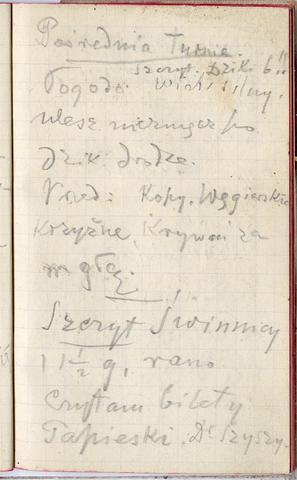 Pośrednia Turnia.
szczyt. Dziki b
Pogoda. Wiatr silny.
dzik
Przed: Kopy. Węgierskie
Krzyżne, Krywań za
mgłą.
Szczyt Świnnicy
11 1/2 g, rano
Czytam bilety
Tapieski. Dr Szyszy.